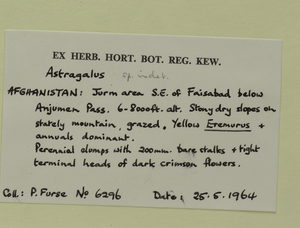 EX HERB. HORT. BOT. REG. KEW.
Astragalus sp. indet.
AFGHANISTAN: Jurm area S.E. of Faisabad below
Anjuman Pass. 6-8000ft. alt. Stony dry slopes on
stately mountain, grazed. Yellow Eremurus +
annuals dominant.
Perennial clumps with 200mm. bare stalks + tight
terminal heads of dark crimson flowers.
Coll: P. Furse No 6296 Date: 25.5.1964